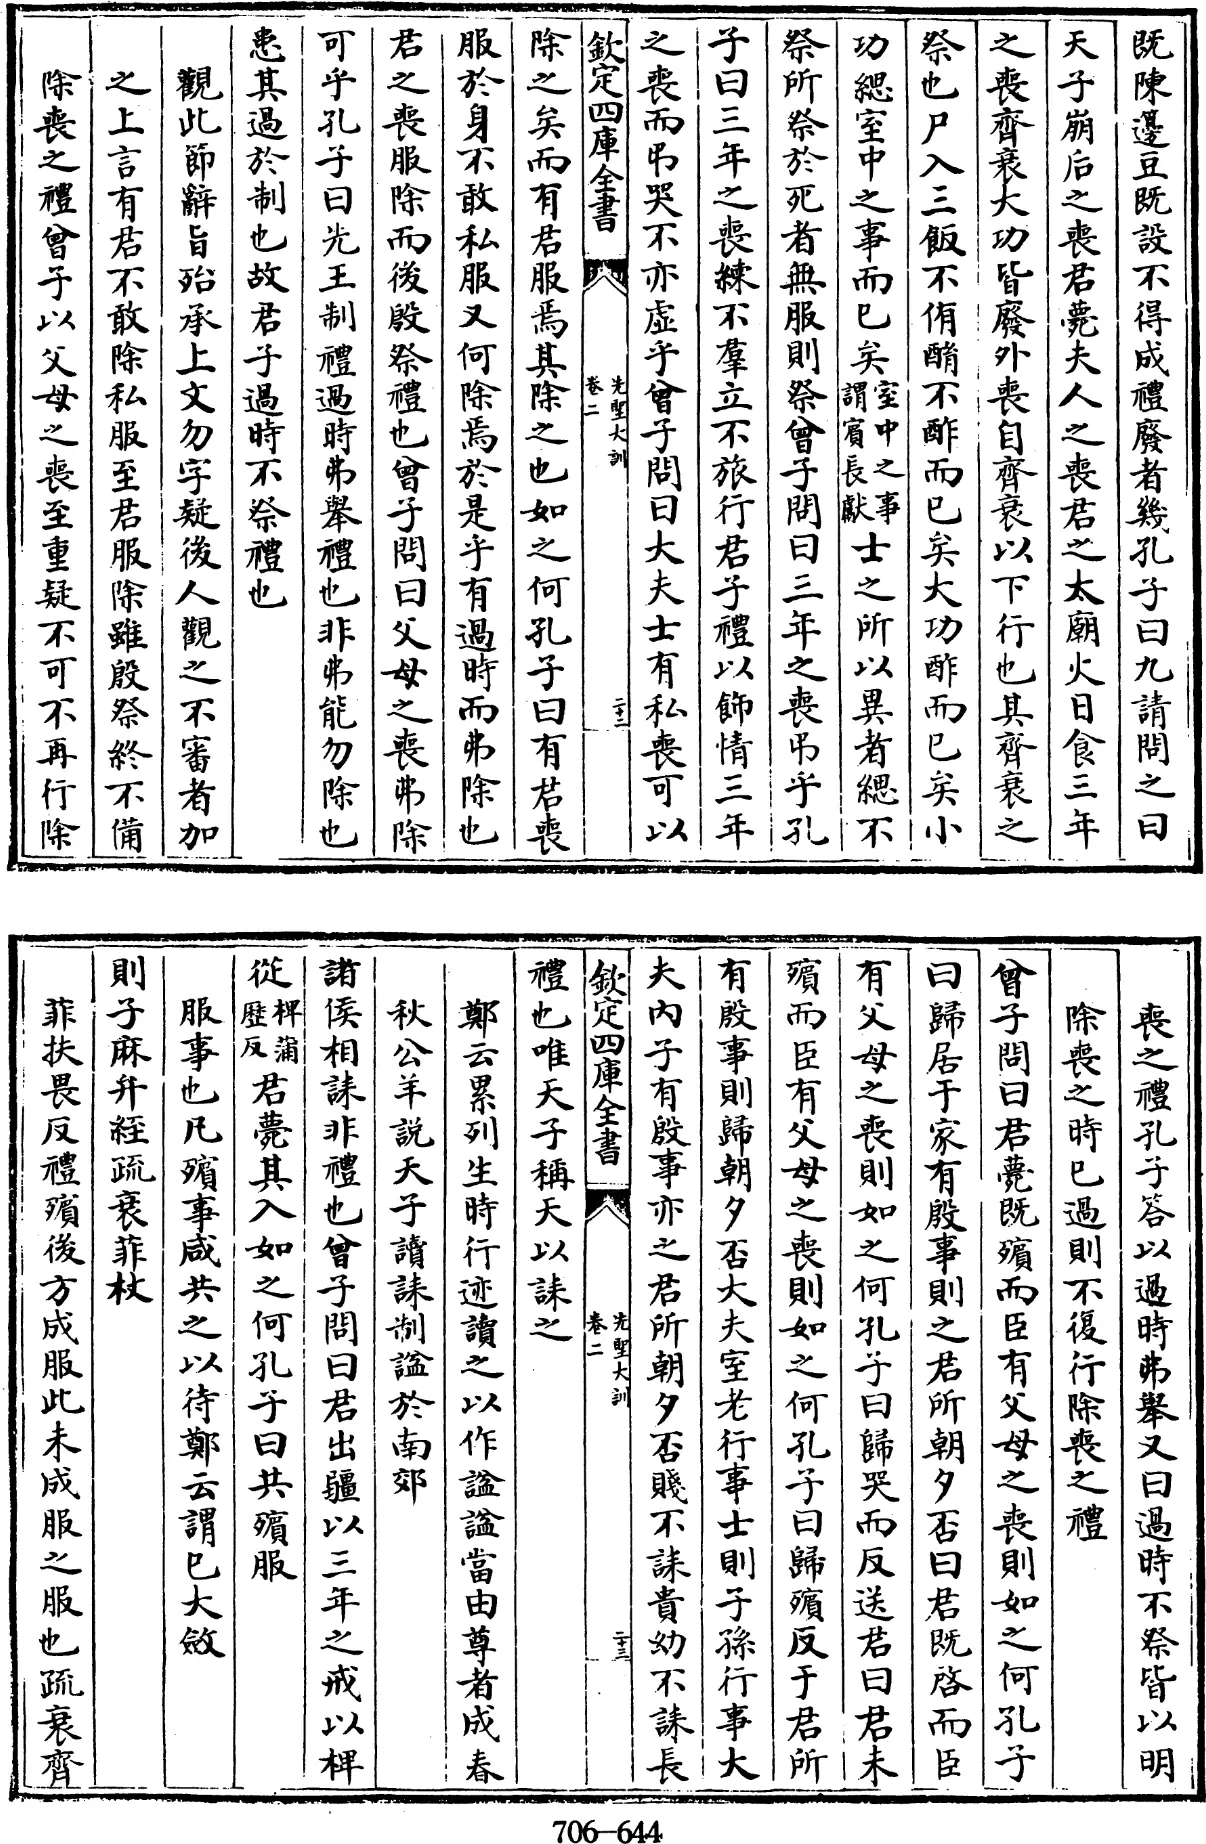 既陳籩豆既設不得成禮廢者幾孔子曰九請問之曰
天子崩后之喪君薨夫人之喪君之太廟火日食三年
之喪齊衰大功皆廢外喪自齊衰以下行也其齊衰之
祭也尸入三飯不侑酳不酢而已矣大功酢而已矣小
功緦室中之事而已矣室中之事謂賓長獻士之所以異者緦不
祭所祭於死者無服則祭曾子問曰三年之喪弔乎孔
子曰三年之喪練不羣立不旅行君子禮以飾情三年
之喪而弔哭不亦虛乎曾子問曰大夫士有私喪可以
欽定四庫全書
先聖大訓
卷二
二十二
除之矣而有君服焉其除之也如之何孔子曰有君喪
服於身不敢私服又何除焉於是乎有過時而弗除也
君之喪服除而後殷祭禮也曾子問曰父母之喪弗除
可乎孔子曰先王制禮過時弗舉禮也非弗能勿除也
患其過於制也故君子過時不祭禮也
觀此節辭旨殆承上文勿字疑後人觀之不審者加
之上言有君不敢除私服至君服除雖殷祭終不備
除喪之禮曾子以父母之喪至重疑不可不再行除
喪之禮孔子答以過時弗舉又曰過時不祭皆以明
除喪之時已過則不復行除喪之禮
曾子問曰君薨既殯而臣有父母之喪則如之何孔子
曰歸居于家有殷事則之君所朝夕否曰君既啓而臣
有父母之喪則如之何孔子曰歸哭而反送君曰君未
殯而臣有父母之喪則如之何孔子曰歸殯反于君所
有殷事則歸朝夕否大夫室老行事士則子孫行事大
夫內子有殷事亦之君所朝夕否賤不誄貴幼不誄長
欽定四庫全書
先聖大訓
卷二
二十三
禮也唯天子稱天以誄之
鄭云累列生時行迹讀之以作諡諡當由尊者成春
秋公羊說天子讀誄制諡於南郊
諸侯相誄非禮也曾子問曰君出疆以三年之戒以椑
從椑蒲歷反君薨其入如之何孔子曰共殯服
服事也凡殯事咸共之以待鄭云謂已大斂
則子麻弁絰疏衰菲杖
菲扶畏反禮殯後方成服此未成服之服也疏衰齊
706-644